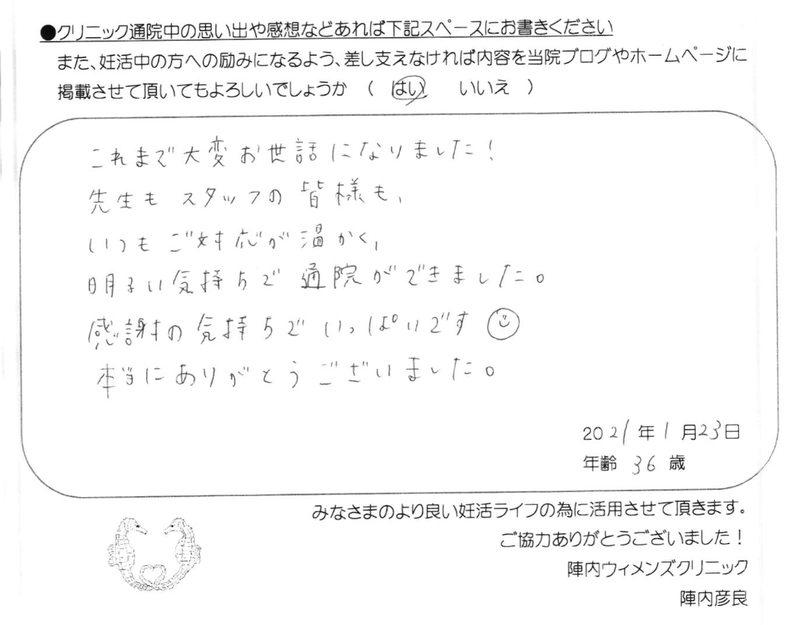 ●クリニック通院中の思い出や感想などあれば下記スペースにお書きください
また、妊活中の方への励みになるよう、差し支えなければ内容を当院ブログやホームページに
掲載させて頂いてもよろしいでしょうか （ はい いいえ ）
これまで大変お世話になりました！
先生もスタッフの皆様も、
いつもご対応が温かく、
明るい気持ちで通院ができました。
感謝の気持ちでいっぱいです
本当にありがとうございました。
2021年1月23日
年齢 36 歳
みなさまのより良い妊活ライフの為に活用させて頂きます。
ご協力ありがとうございました！
陣内ウィメンズクリニック
陣内彦良